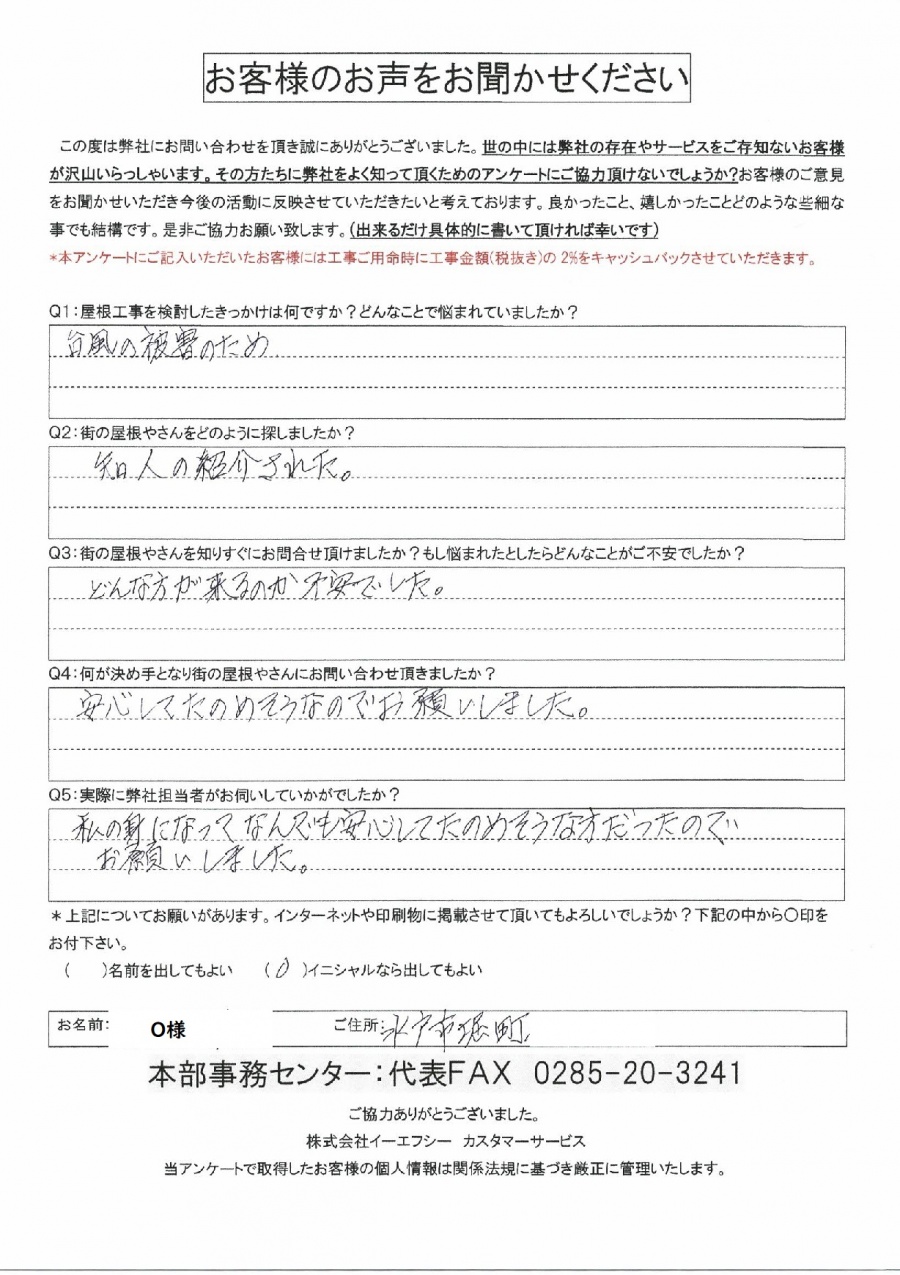 お客様のお声をお聞かせください
この度は弊社にお問い合わせを頂き誠にありがとうございました。世の中には弊社の存在やサービスをご存知ないお客様
が沢山いらっしゃいます。その方たちに弊社をよく知って頂くためのアンケートにご協力頂けないでしょうか?お客様のご意見
をお聞かせいただき今後の活動に反映させていただきたいと考えております。良かったこと、嬉しかったことどのような些細な
事でも結構です。是非ご協力お願い致します。(出来るだけ具体的に書いて頂ければ幸いです)
*本アンケートにご記入いただいたお客様には工事ご用命時に工事金額(税抜き)の 2%をキャッシュバックさせていただきます。
Q1:屋根工事を検討したきっかけは何ですか?どんなことで悩まれていましたか?
台風の被害のため
Q2:街の屋根やさんをどのように探しましたか?
知人の紹介された。
Q3:街の屋根やさんを知りすぐにお問合せ頂けましたか?もし悩まれたとしたらどんなことがご不安でしたか?
どんな方が来るのか不安でした。
Q4:何が決め手となり街の屋根やさんにお問い合わせ頂きましたか?
安心してたのめそうなのでお願いしました。
Q5:実際に弊社担当者がお伺いしていかがでしたか?
私の身になってなんでも安心してたのめそうな方だったので
お願いしました。
*上記についてお願いがあります。インターネットや印刷物に掲載させて頂いてもよろしいでしょうか?下記の中から〇印を
お付下さい。
( )名前を出してもよい (〇)イニシャルなら出してもよい
お名前: O様 ご住所:水戸市堀町
本部事務センター:代表FAX 0285-20-3241
ご協力ありがとうございました。
株式会社イーエフシー カスタマーサービス
当アンケートで取得したお客様の個人情報は関係法規に基づき厳正に管理いたします。